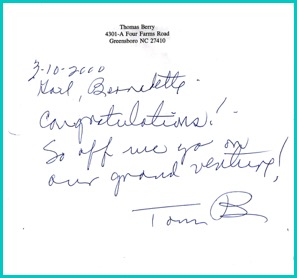 Thomas Berry
4301-A Four Farms Road
Greensboro NC 27410
3-10-2000
Gail, Bernadette -
Congratulations!
So off we go on
our grand venture!
Tom B